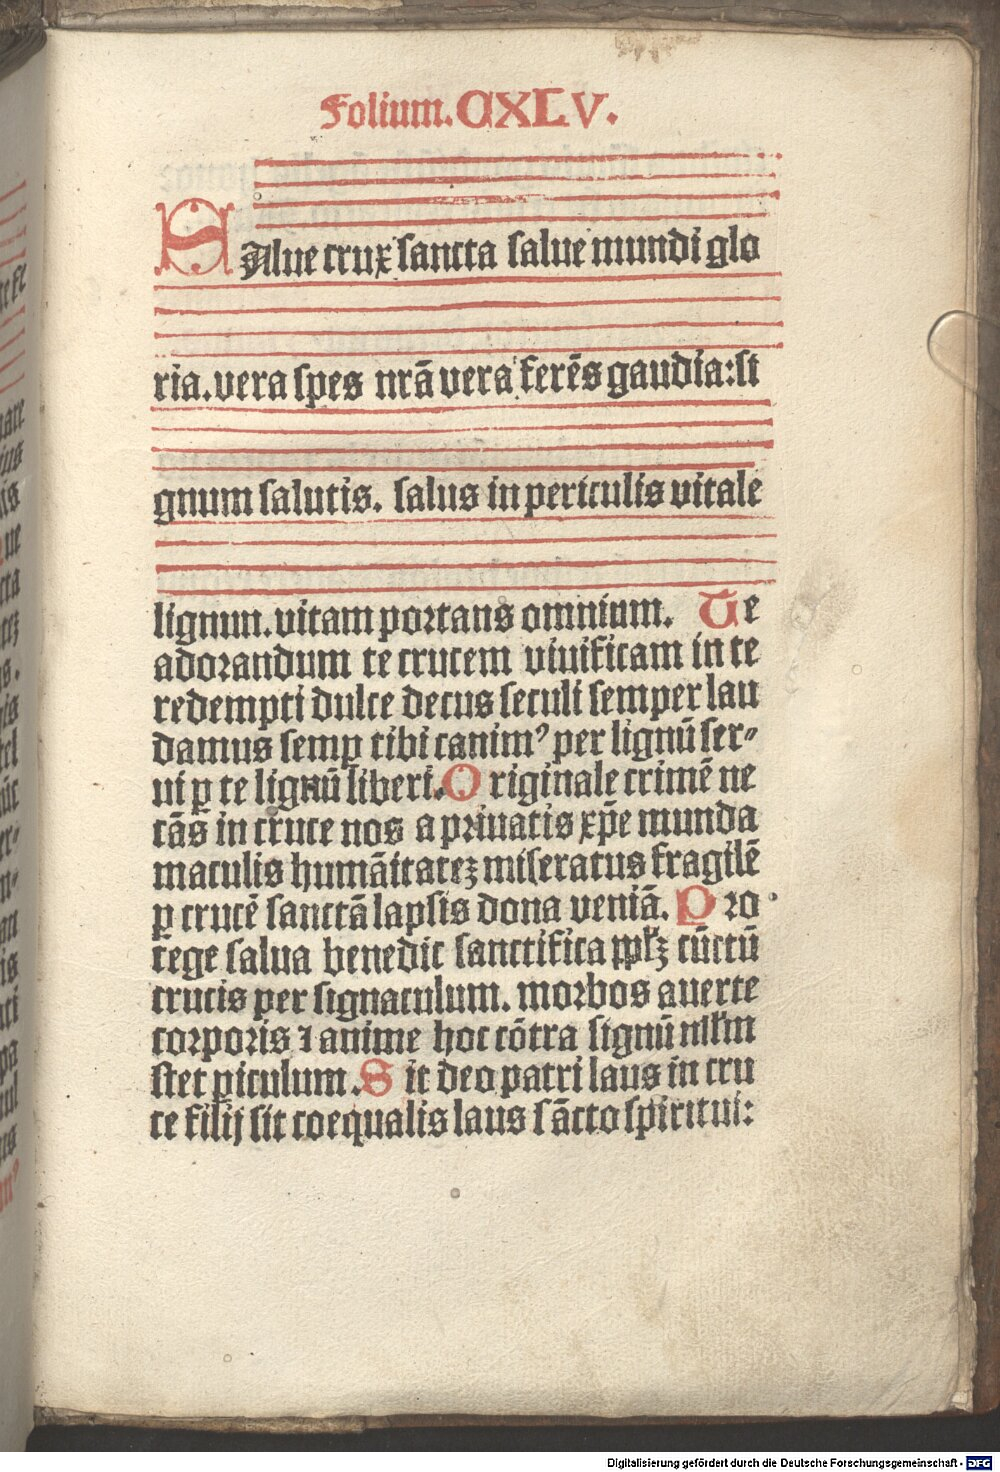 Folium. CXLV.
SAlue crux sancta salue mundi glo
ria. vera spes nrã vera ferẽs gaudia: si
gnum salutis. salus in periculis vitale
lignum. vitam portans omnium. Te
adorandum te crucem viuificam in te
redempti dulce decus seculi semper lau
damus semꝑ tibi canimꝰ per lignũ ser⸗
ui ꝑ te lignũ liberi. Originale crimẽ ne
cãs in cruce nos a priuatis xp̃e munda
maculis humãitateꝫ miseratus fragilẽ
ꝑ crucẽ sanctã lapsis dona veniã. Pro
tege salua benedic sanctifica cũctũ
crucis per signaculum. morbos auerte
corporis ⁊ anime hoc cõtra signũ
stet ꝑiculum. Sit deo patri laus in cru
ce filij sit coequalis laus sãcto spiritui:
Digitalisierung gefördert durch die Deutsche Forschungsgemeinschaft - DFG